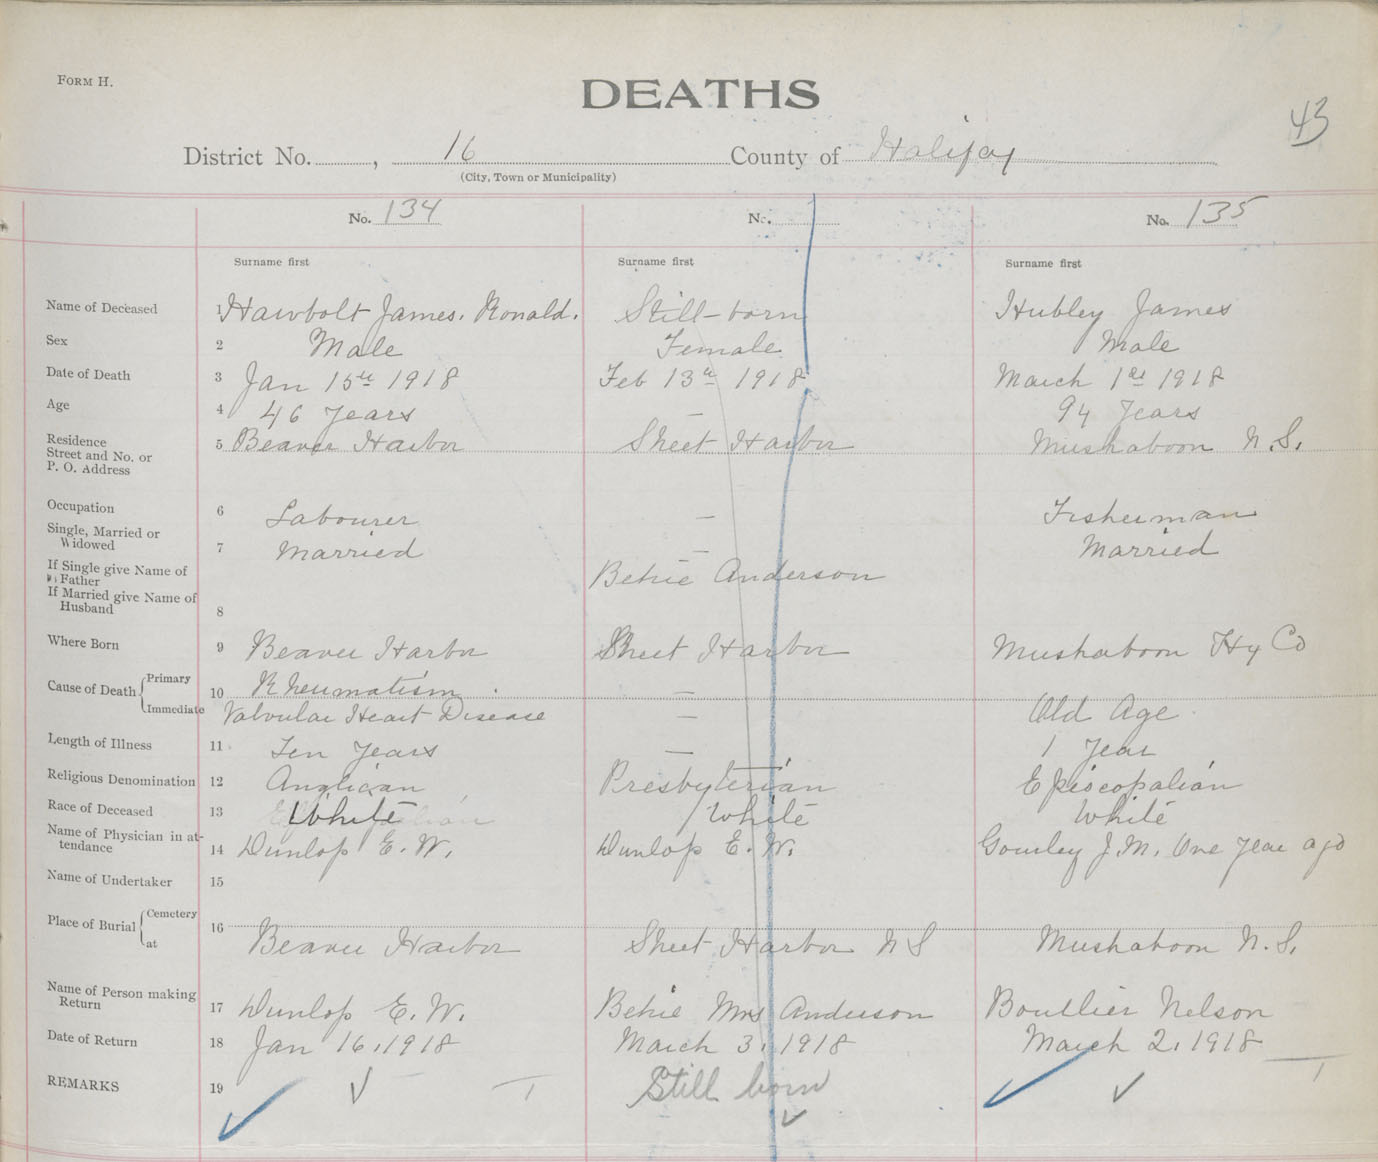 FORM H.
DEATHS
43
District No. , 16 County of Halifax
(City, Town or Municipality)
No. 134 No. No. 135
Surname first Surname first Surname first
Name of Deceased 1 Hawbolt James. Ronald. Still-born Hubley James
Sex 2 Male Female Male
Date of Death 3 Jan 15th 1918 Feb 13th 1918 March 1st 1918
Age 4 46 Years — 94 Years
Residence
Street and No. or 5 Beaver Harbor Sheet Harbor Mushaboon N.S.
P. O. Address
Occupation 6 Labourer — Fisherman
Single, Married or
Widowed 7 Married — Married
If Single give Name of
Father Anderson
If Married give Name of
Husband 8
Where Born 9 Beaver Harbor Sheet Harbor Mushaboon Hx Co
Cause of Death Primary 10 Rheumatism —
Immediate Valvular Heart Disease — Old Age
Length of Illness 11 Ten Years — 1 Year
Religious Denomination 12 Anglican Presbyterian Episcopalian
Race of Deceased 13 White White White
Name of Physician in at-
tendance 14 Dunlop E. W. Dunlop E. W. Gourley J.M. One year ago
Name of Undertaker 15
Place of Burial Cemetery 16
at Beaver Harbor Sheet Harbor N S Mushaboon N.S.
Name of Person making
Return 17 Dunlop E. W. Mrs Anderson Boutlier Nelson
Date of Return 18 Jan 16, 1918 March 3, 1918 March 2, 1918
REMARKS 19 Still born